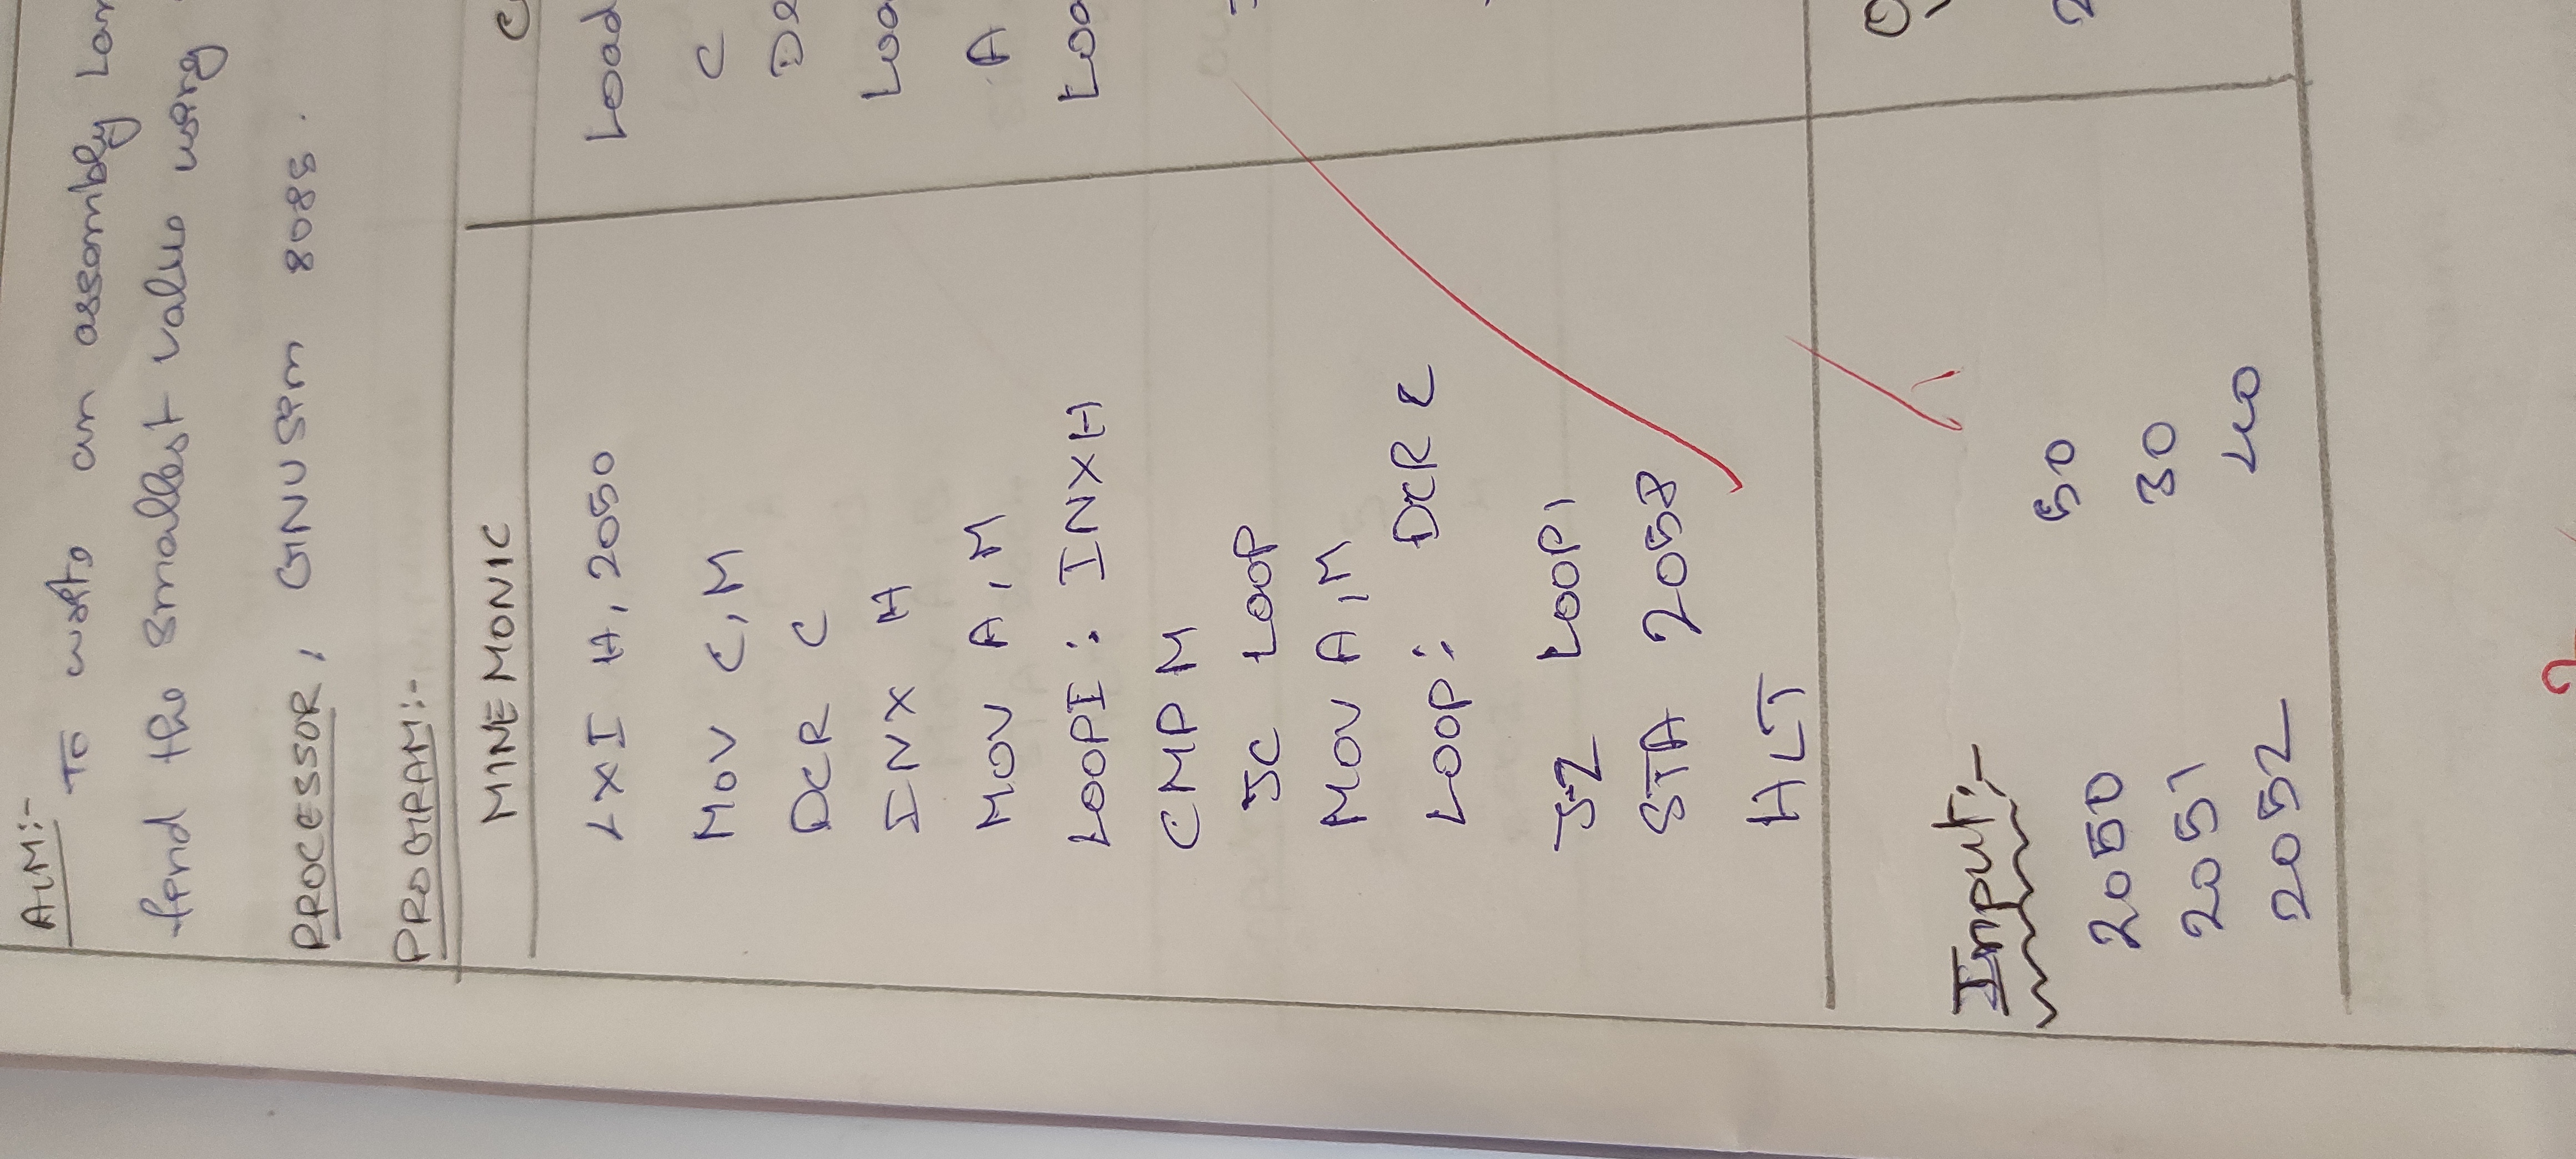 AIM:-
To write an assembly Lan
find the smallest value using
PROCESSOR, GNUSim 8085.
PROGRAM:-
MINEMONIC C
LXI H, 2050 Load
MOV C, M C
DCR C De
INX H Loa
MOV A, M A
LOOPI : INXH Loa
CMP M
JC LOOP
MOV A, M
LOOP : DCR C
JZ LOOP1
STA 2058
HLT
Input:- O
2050 50 2
2051 30
2052 40
2